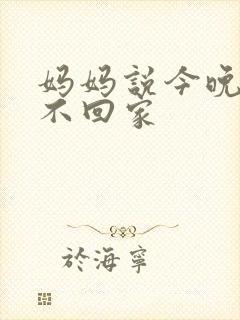 妈妈説今晚
不回家
於海寧